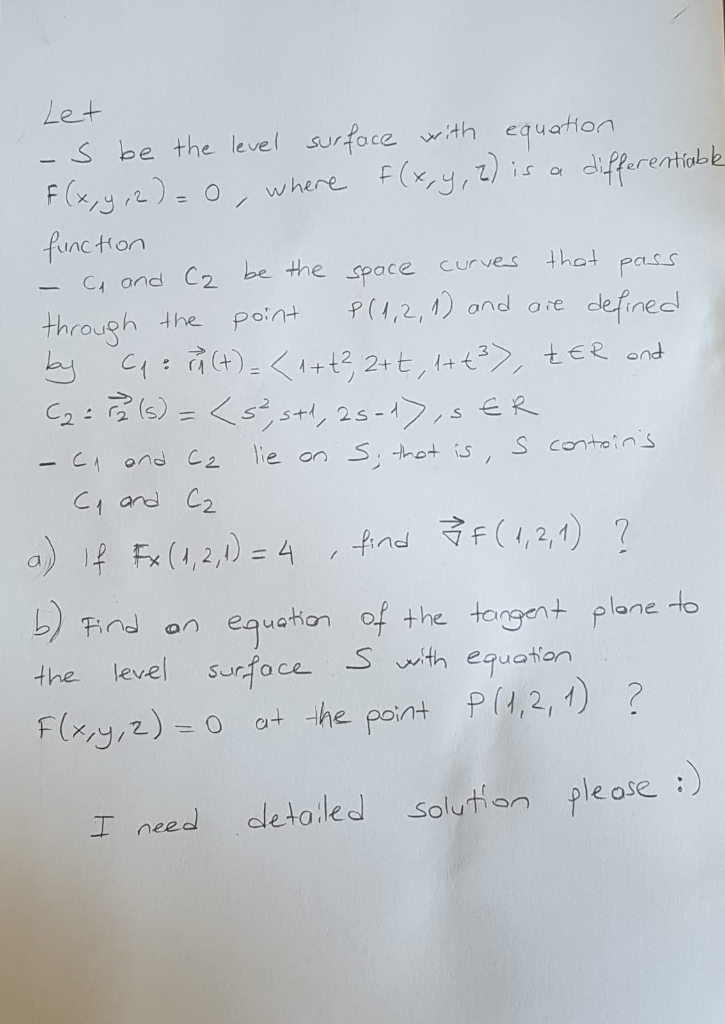 Let
- S be the level surface with equation
F(x,y,z) = 0, where F(x,y,z) is a differentiable
function
- C1 and C2 be the space curves that pass
through the point P(1,2,1) and are defined
by C1: r⃗1(t) = <1+t², 2+t, 1+t³>, t∈R and
C2: r⃗2(s) = <s², s+1, 2s-1>, s ∈ R
- C1 and C2 lie on S; that is, S contain's
C1 and C2
a) If Fx(1,2,1) = 4, find ∇⃗F(1,2,1) ?
b) Find an equation of the tangent plane to
the level surface S with equation
F(x,y,z) = 0 at the point P(1,2,1) ?
I need detailed solution please :)